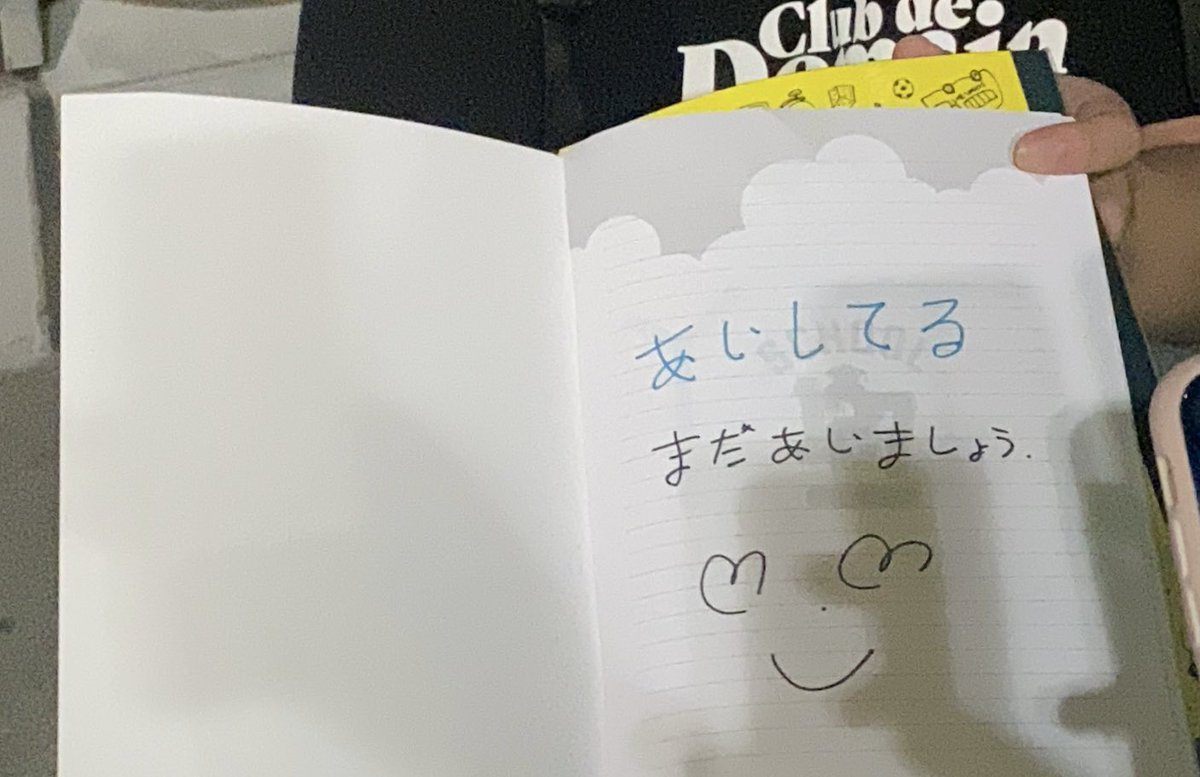 Club de
Domain
あいしてる
まだあいましょう.